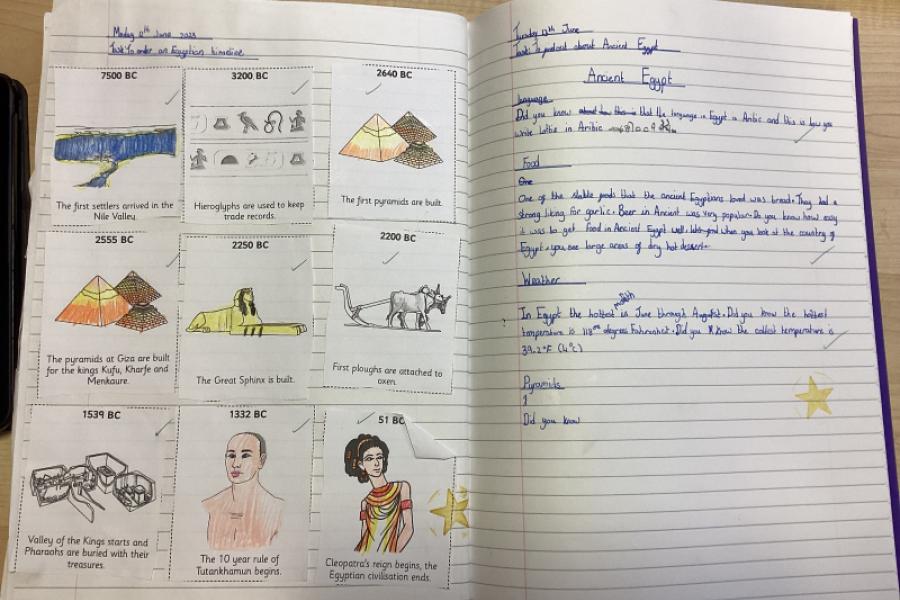 Monday 12th June 2023
Task: To order an Egyptian timeline
7500 BC
The first settlers arrived in the
Nile Valley.
3200 BC
Hieroglyphs are used to keep
trade records.
2640 BC
The first pyramids are built.
2555 BC
The pyramids at Giza are built
for the kings Kufu, Kharfe and
Menkaure.
2250 BC
The Great Sphinx is built.
2200 BC
First ploughs are attached to
oxen.
1539 BC
Valley of the Kings starts and
Pharaohs are buried with their
treasures.
1332 BC
The 10 year rule of
Tutankhamun begins.
51 BC
Cleopatra's reign begins, the
Egyptian civilisation ends.
Tuesday 13th June
Task: To about Ancient Egypt
Ancient Egypt
language
Did you know is that the language in Egypt is Arbic and this is how you
write in Aribic
Food
One of the stable foods that the ancient Egyptians loved was bread. They had a
strong liking for garlic. Beer in Ancient was very popular. Do you know how easy
it was to get food in Ancient Egypt well, when you look at the country of
Egypt you see large areas of dry hot dessert.
Weather
In Egypt the hottest month is June through Augufst. Did you know the hottest
temperature is degrees Fahrenheit. Did you know the collest temperature is
39.2°F (4°C)
Pyramids
Did you know